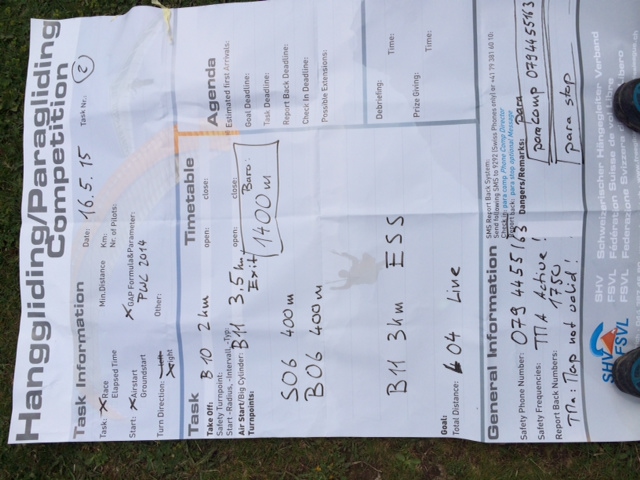 Hanggliding/Paragliding
Competition
Task Information
Date: 16.5.15
Task Nr.: 2
Task: X Race
Elapsed Time
Min.Distance
Km:
Nr. of Pilots:
Start: X Airstart
Groundstart
X GAP Formula&Parameter:
PWC 2014
Turn Direction:
right
Other:
Task
Timetable
Agenda
Take Off: B10 2km
open:
close:
Estimated first Arrivals:
Safety Turnpoint:
Goal Deadline:
Start -Radius, -Intervall, -Typ:
Task Deadline:
Air Start/Big Cylinder: B11 3.5km
open:
close:
Exit
Baro:
1400m
Turnpoints:
Report Back Deadline:
Check In Deadline:
Possible Extensions:
S06 400m
B06 400m
B11 3km ESS
Debriefing:
Time:
Prize Giving:
Time:
Goal: L04 Line
Total Distance:
General Information
SMS Report Back System:
Send following SMS to 9292 (Swiss Phones only) or +41 79 381 60 10:
Check in: para comp Phone Comp Director
Report back: para stop optional Message
Safety Phone Number: 079 4455163
Dangers/Remarks:
para
para comp 0794455163
para stop
Safety Frequencies: TMA Active!
Report Back Numbers: 1750
TMA: Map not valid!
SHV
FSVL
SHV Schweizerischer Hängegleiter Verband
FSVL Fédération Suisse de vol libre
FSVL Federazione Svizzera Volo Libero